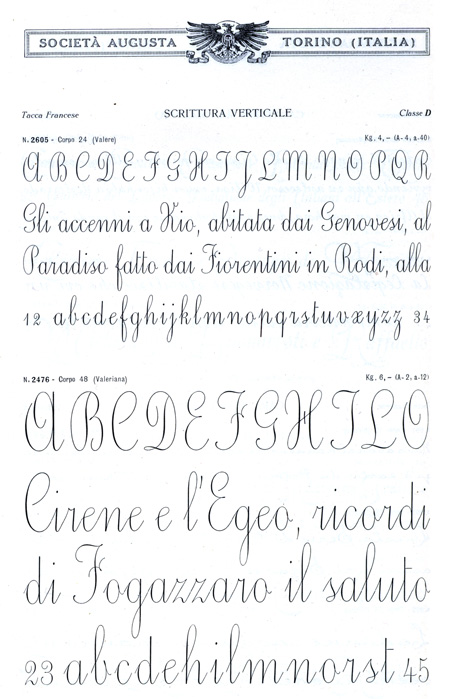 SOCIETÀ AUGUSTA TORINO (ITALIA)
Tacca Francese SCRITTURA VERTICALE Classe D
N. 2605 - Corpo 24 (Valere) Kg. 4, – (A-4, a-40)
A B C D E F G H I J L M N O P Q R
Gli accenni a Xio, abitata dai Genovesi, al
Paradiso fatto dai Fiorentini in Rodi, alla
12 abcdefghijklmnopqrstuvxyzz 34
N. 2476 - Corpo 48 (Valeriana) Kg. 6, – (A-2, a-12)
A B C D E F G H I L O
Cirene e l'Egeo, ricordi
di Fogazzaro il saluto
23 abcdehilmnorst 45